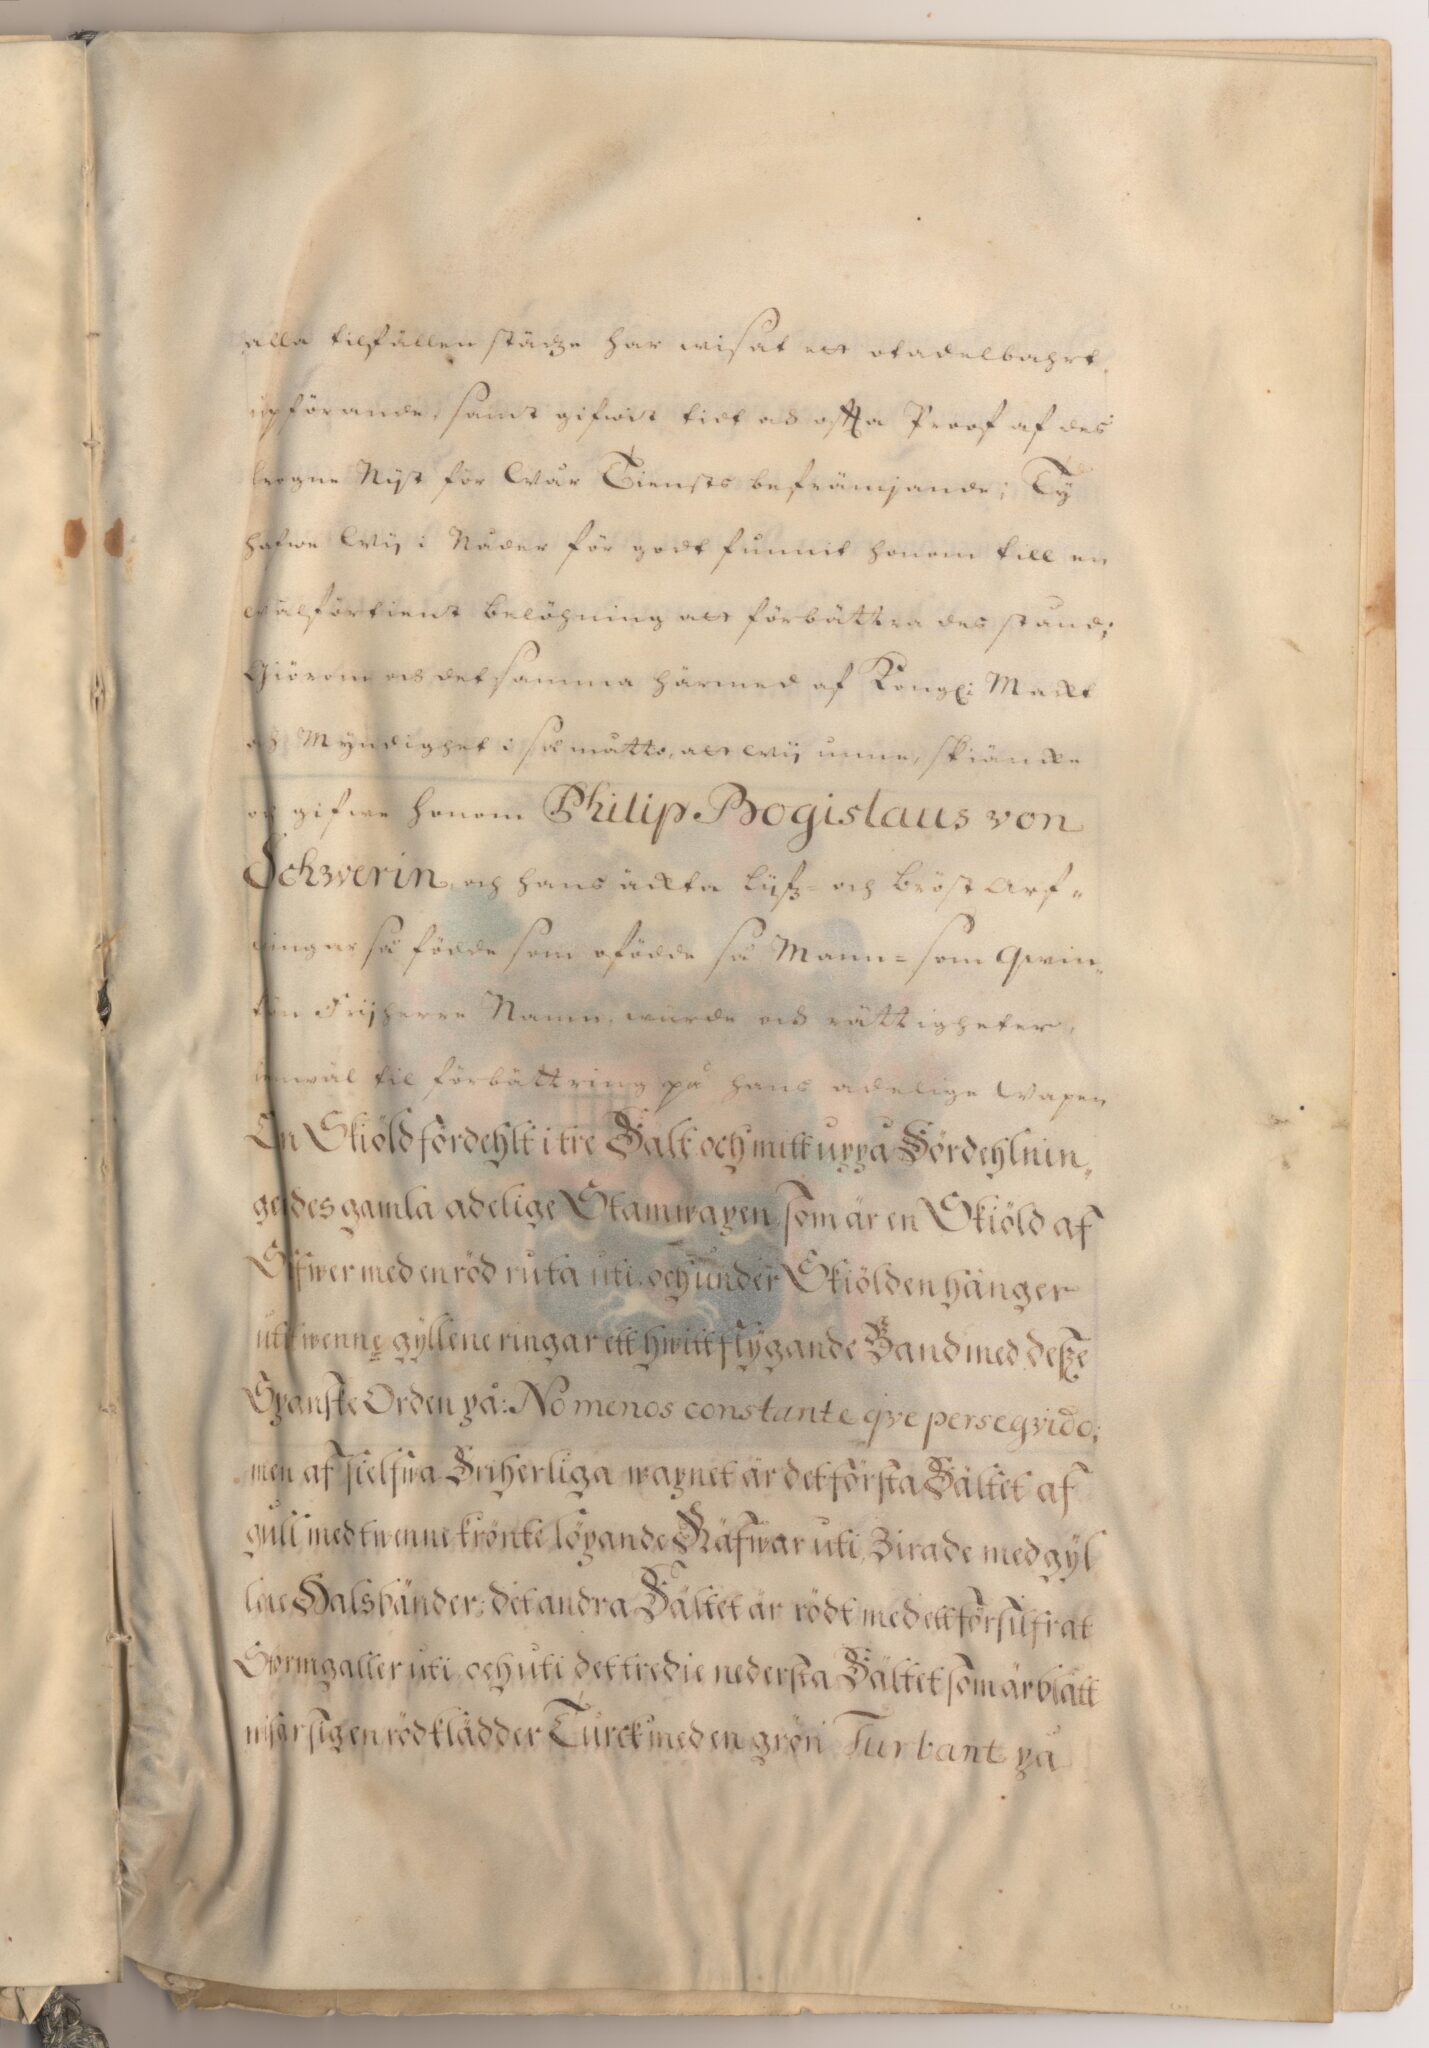 alla tilfällen städze har wisat ett otadelbahrt
upförande, samt gifwit tidt och offta Proof af des
trogne Nijt för Wår Tiensts befrämjande; Ty
hafwe Wij i Nåder för godt funnit honom till en
wälförtient belöhning att förbättra des stånd;
Giörom och det samma härmed af Kongl: Mackt
och Myndighet i så måtto, att Wij unne, skiäncke
och gifwe honom Philip Bogislaus von
Schwerin, och hans äckta Lijfz- och bröst Arf-
wingar så födde som ofödde så Mann- som Qwin-
kön Frijherre Namn, wärde och rättigheter,
jemwäl til förbättring på hans adelige Wapen
En Skiöld fördehlt i tre Fält och mitt uppå Fördehlnin-
ge des gamla adelige Stamwapen som är en Skiöld af
Silfwer med en röd ruta uti, och under Skiölden hänger
uti twenne gyllene ringar ett hwitt flygande Band med desze
Spanske Orden på: No menos constante qve persegvido;
men af sielfwa Friherliga wapnet är det första Fältet af
gull med twenne krönte löpande Räfwar uti, Zirade med gyl
lene Halsbänder; det andra Fältet är rödt med ett försilfrat
Stormgaller uti, och uti det tredie nedersta Fältet som är blått
wisar sig en rödklädder Turck med en grön Turbant på